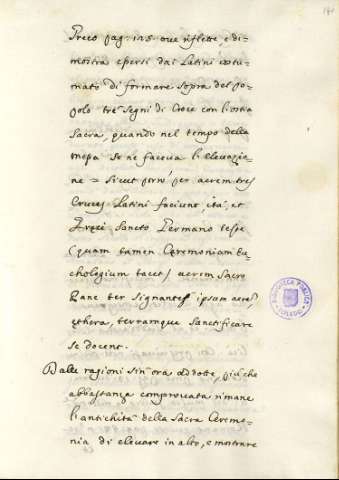 141
Greco pag. 125. ove riflette, e di-
mostra epersi dai Latini costu-
mato di formare sopra del po-
polo tre segni di Croce con l'ostia
Sacra, quando nel tempo della
mepa se ne faceva l'elevazio-
ne = Sicut porrò per aerem tres
Cruces Latini faciunt, ità, et
Græci Sancto Germano teste
(quam tamen Ceremoniam Eu-
chologium tacet) aerem Sacro
Pane ter Signantes ipsum aerem,
æthera, terramque Sanctificare
se docent.
Dalle ragioni sin'ora addotte, più che
abbastanza comprovata rimane
l'antichità della Sacra Ceremo-
nia di elevare in alto, e mostrare
BIBLIOTECA PUBLICA
TOLEDO